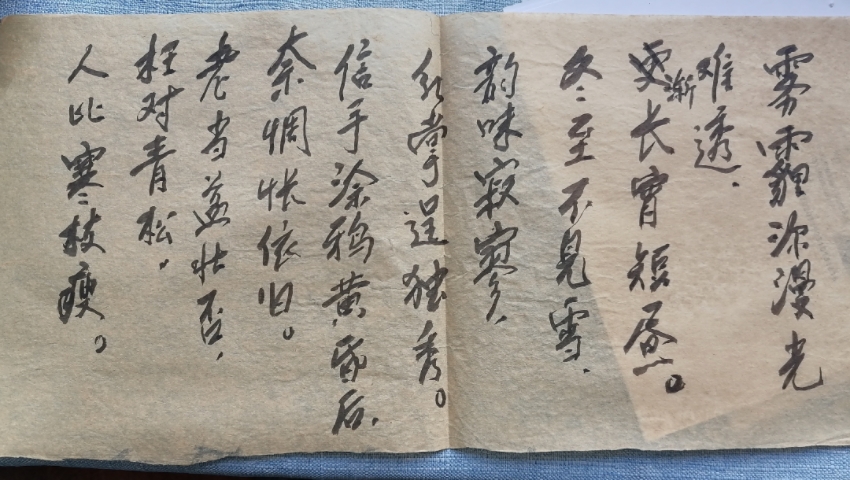 雾霾弥漫光
难透.
更渐长宵短昼。
冬至不见雪.
韵味寂寥,
红掌呈独秀。
信手涂鸦黄昏后,
奈惆怅依旧。
老当益壮否,
枉对青松。
人比寒枝瘦。